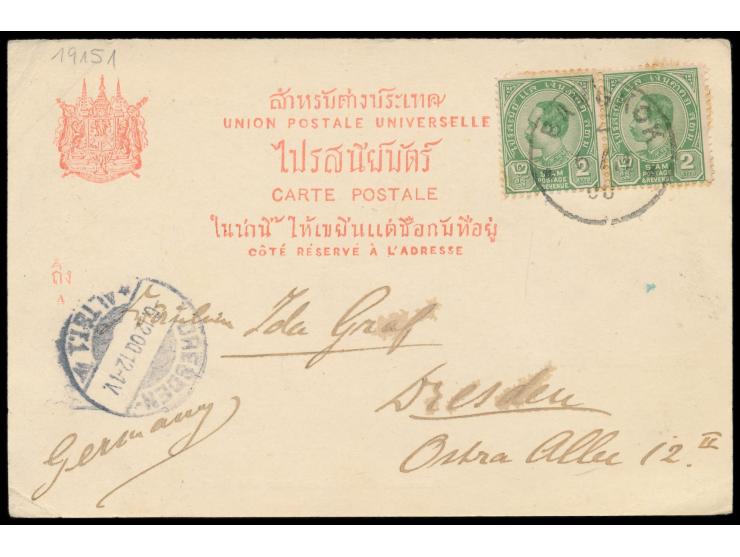 19151
สำหรับต่างประเทศ
UNION POSTALE UNIVERSELLE
ไปรสนียบัตร์
CARTE POSTALE
ในน่านี้ ให้เขียนแต่ชื่อกับที่อยู่
CÔTÉ RÉSERVÉ À L'ADRESSE
ถึง
A
2
SIAM
POSTAGE
& REVENUE
2
SIAM
POSTAGE
& REVENUE
BANGKOK
DRESDEN-
ALTST.1 W
12.00.12-1V.
Fräulein Ida Graf
Dresden
Ostra Allee 12. II
Germany